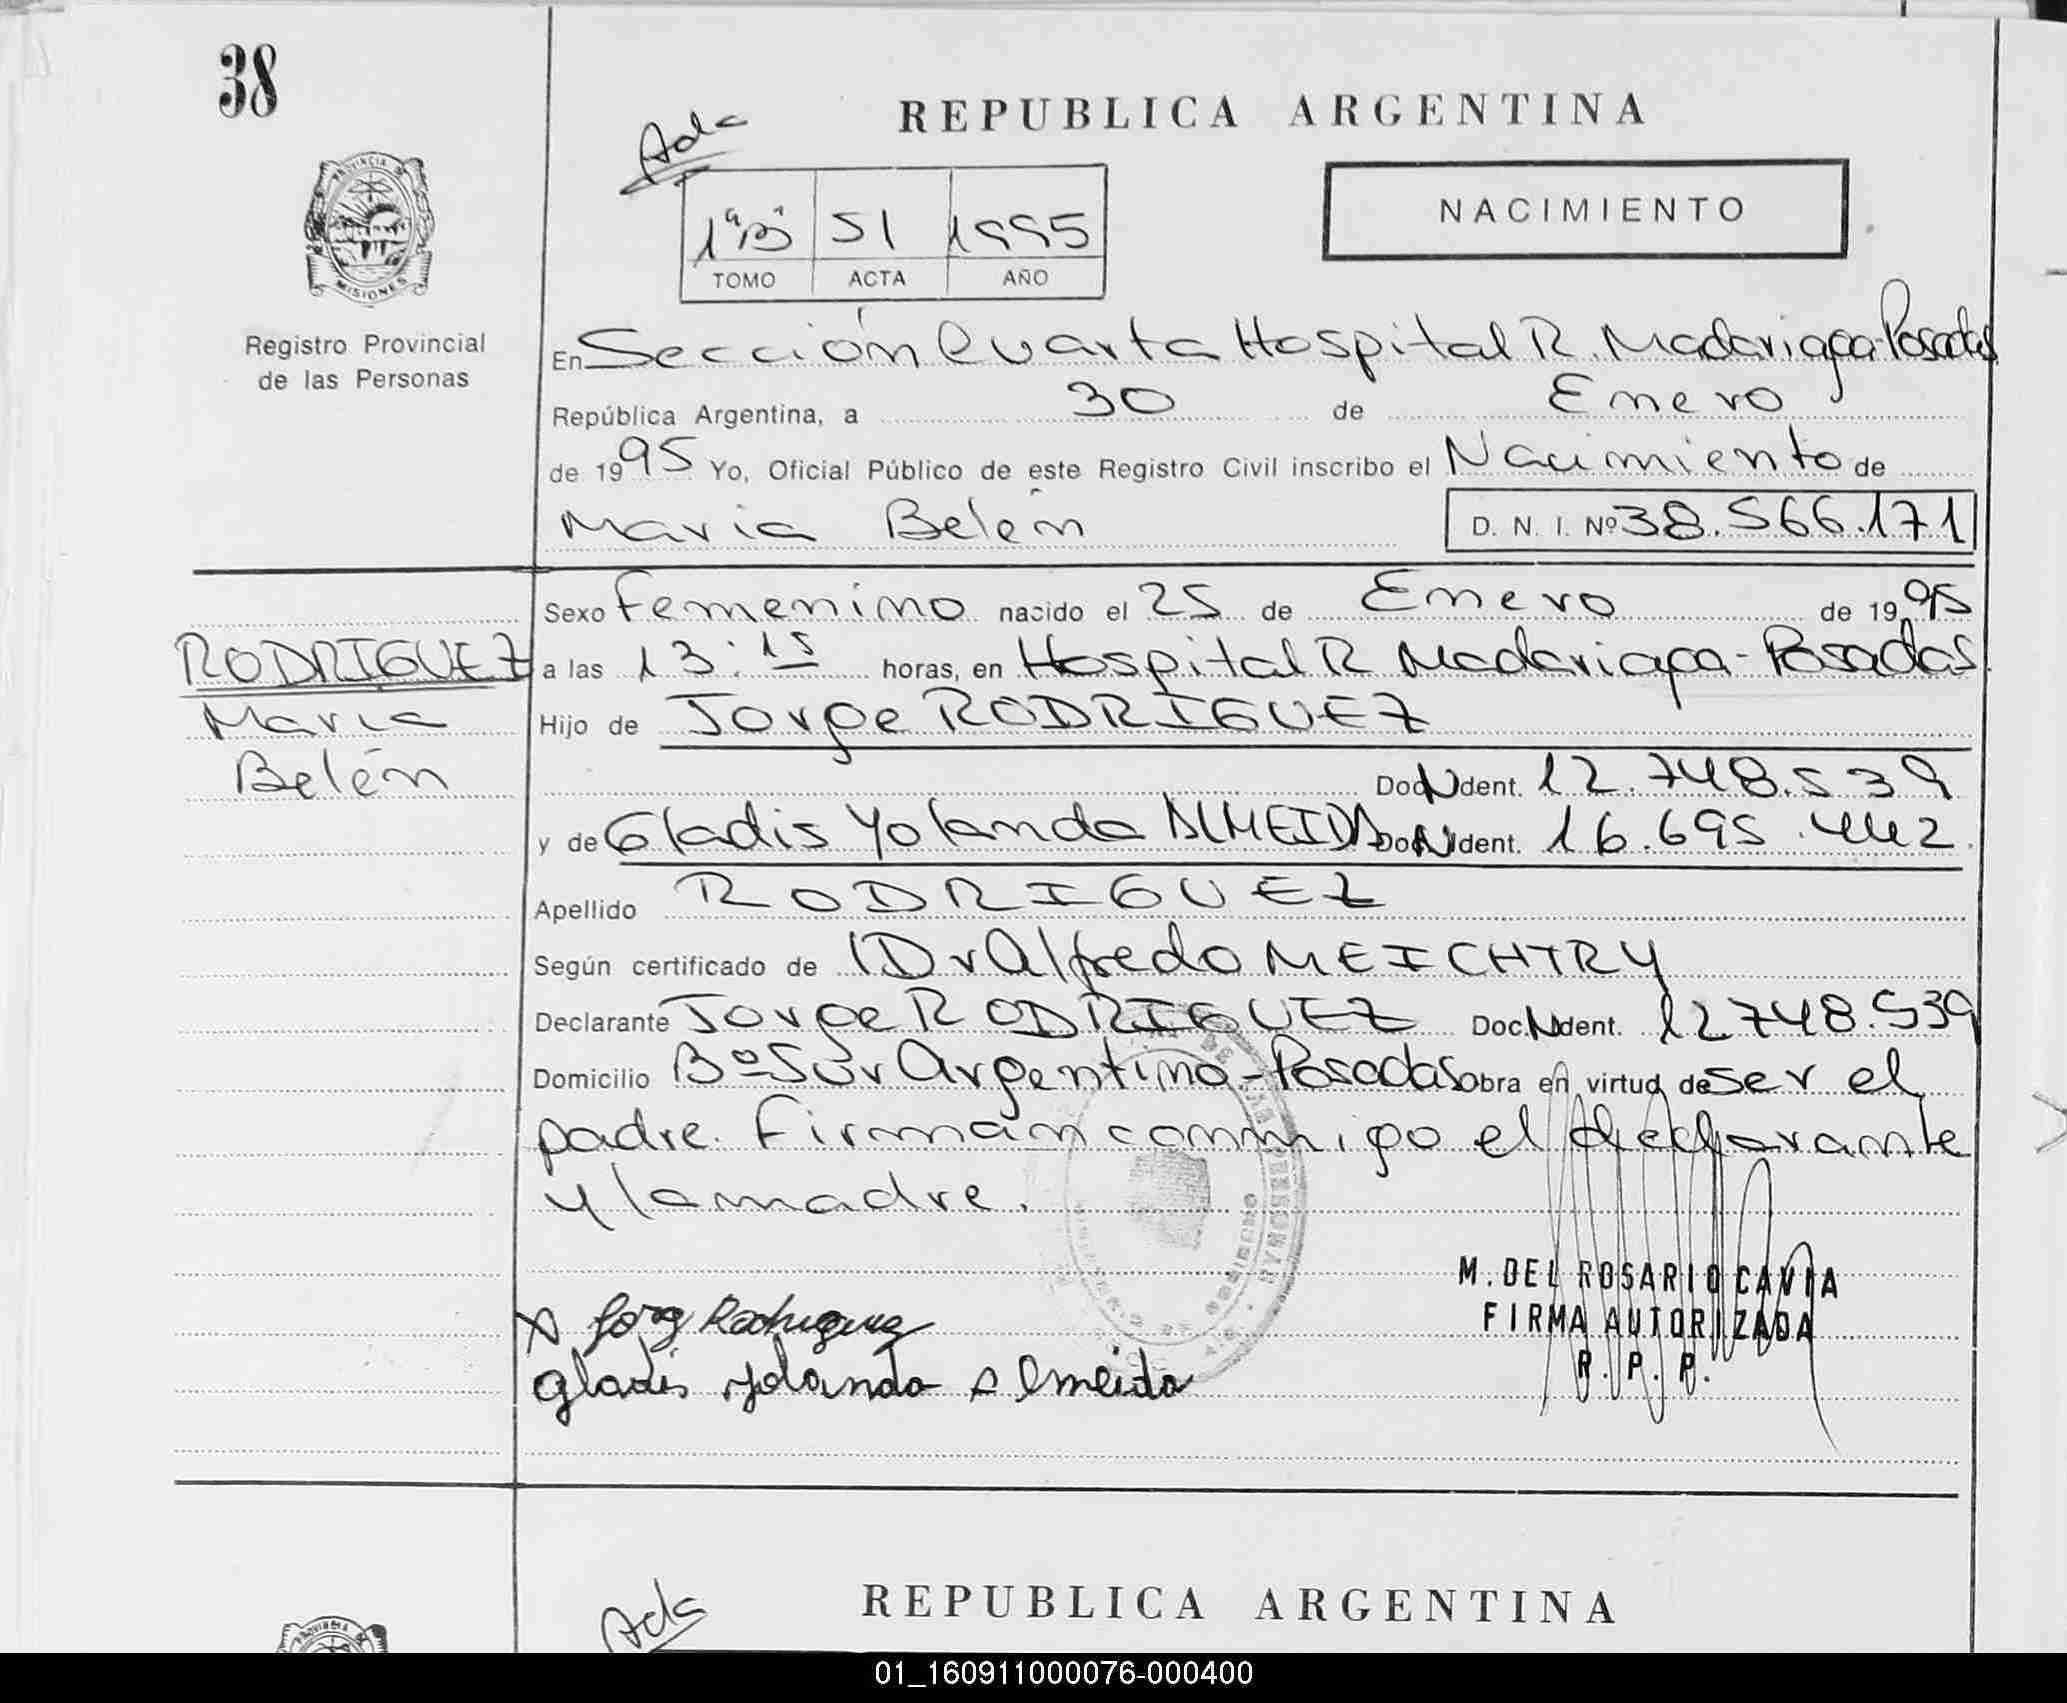 38
REPUBLICA ARGENTINA
Ada
NACIMIENTO
1º B 51 1995
TOMO ACTA AÑO
PROVINCIA DE
MISIONES
Registro Provincial
de las Personas
En Sección Cuarta Hospital R. Madariaga-Posadas
República Argentina, a 30 de Enero
de 1995 Yo, Oficial Público de este Registro Civil inscribo el Nacimiento de
Maria Belén D. N. I. Nº 38.566.171
Sexo Femenino nacido el 25 de Enero de 1995
RODRIGUEZ
Maria
Belén
a las 13:15 horas, en Hospital R Madariaga - Posadas
Hijo de Jorge RODRIGUEZ
Doc N Ident. 12.748.539
y de Gladis Yolanda ALMEIDA Doc N Ident. 16.695.442
Apellido RODRIGUEZ
Según certificado de Dr Alfredo MEICHTRY
Declarante Jorge RODRIGUEZ Doc. N Ident. 12.748.539
Domicilio Bº Sur Argentino - Posadas obra en virtud de ser el
padre. Firman conmigo el declarante
y la madre.
M. DEL ROSARIO CAVIA
FIRMA AUTORIZADA
R. P. P.
Jorg Rodriguez
gladis yolanda almeida
REPUBLICA ARGENTINA
Ada
01_160911000076-000400